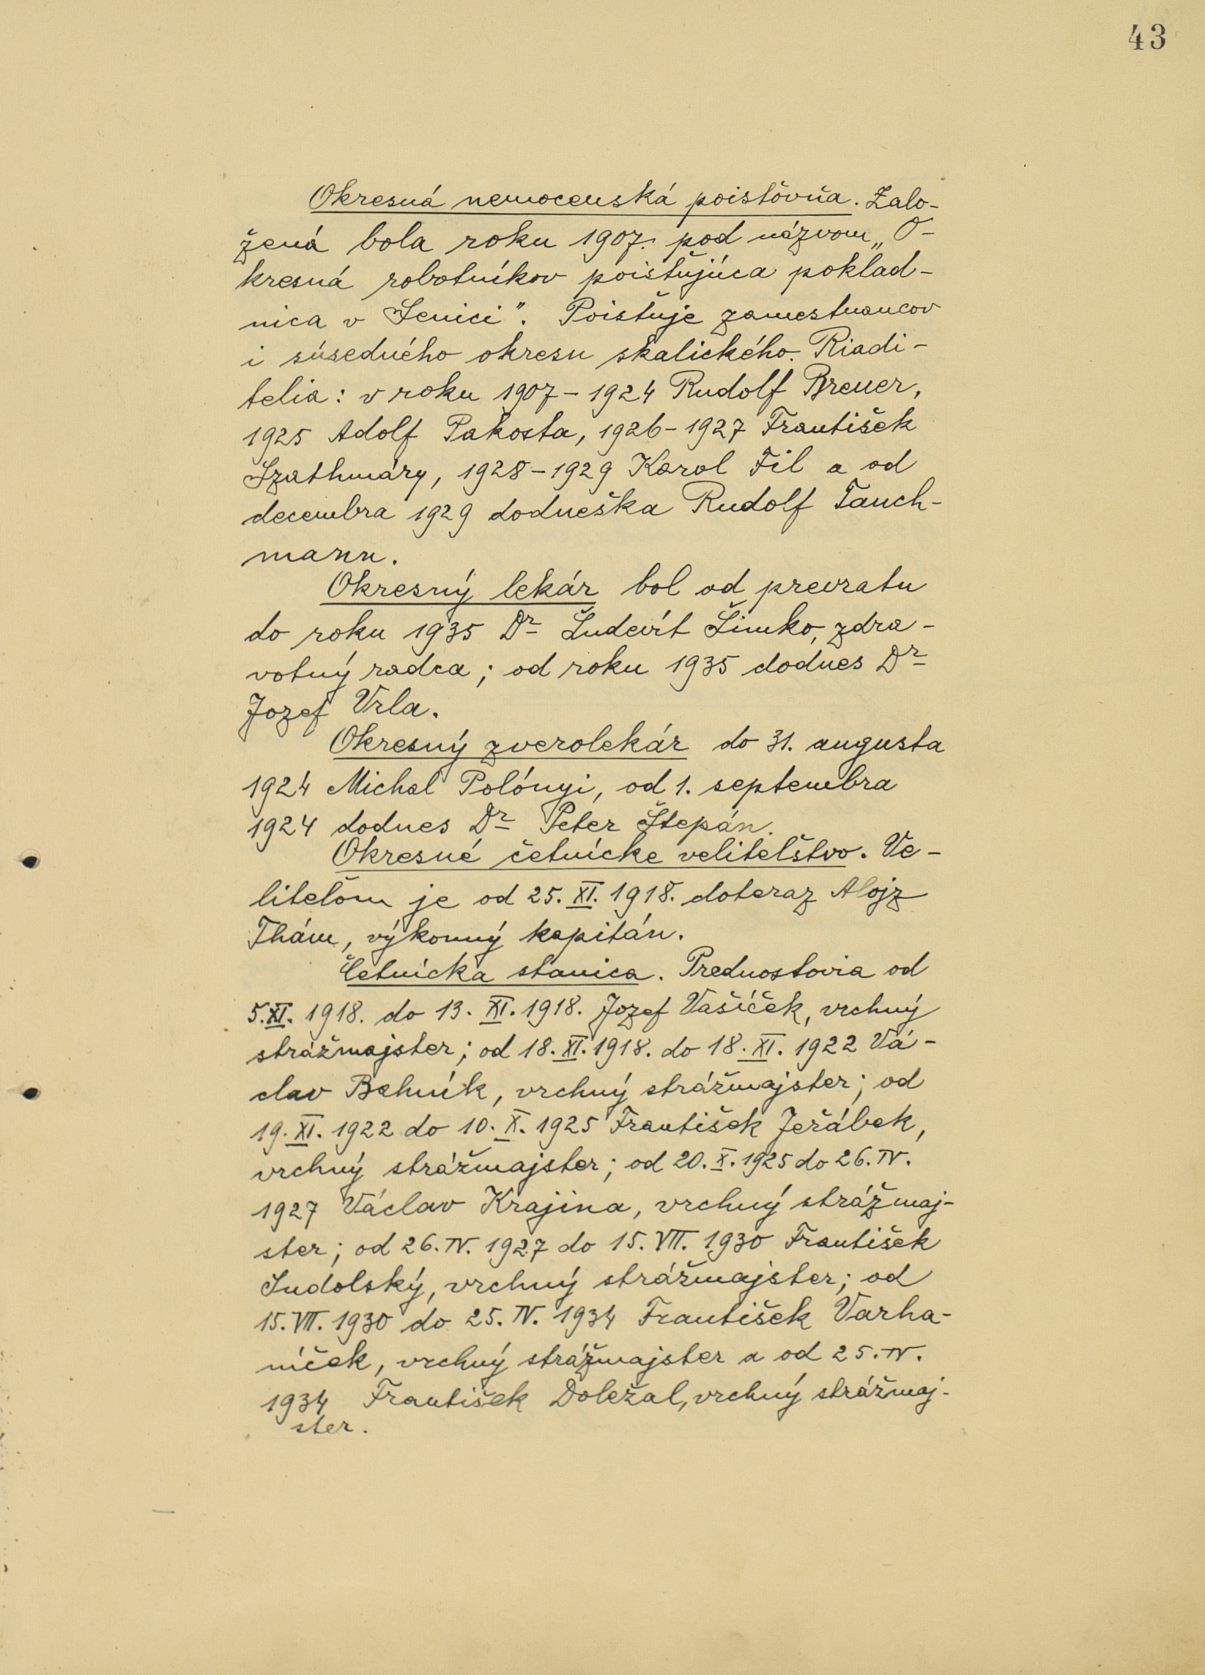 43
Okresná nemocenská poisťovňa. Zalo-
žená bola roku 1907. pod názvom „O-
kresná robotníkov poisťujúca poklad-
nica v Senici". Poisťuje zamestnancov
i súsedného okresu skalického. Riadi-
telia: v roku 1907 – 1924 Rudolf Breuer,
1925 Adolf Pakosta, 1926 – 1927 František
Szathmáry, 1928 – 1929 Karol Fil a od
decembra 1929 dodneška Rudolf Tauch-
mann.
Okresný lekár bol od prevratu
do roku 1935 Dr Ľudevít Šimko, zdra-
votný radca; od roku 1935 dodnes Dr
Jozef Vrla.
Okresný zverolekár do 31. augusta
1924 Michal Polónyi, od 1. septembra
1924 dodnes Dr Peter Štepán.
Okresné četnícke veliteľstvo. Ve-
liteľom je od 25. XI. 1918. doteraz Alojz
Thám, výkonný kapitán.
Četnícka stanica. Prednostovia od
5. XI. 1918. do 13. XI. 1918. Jozef Vašíček, vrchný
strážmajster; od 18. XI. 1918. do 18. XI. 1922 Vá-
clav Behúk, vrchný strážmajster; od
19. XI. 1922 do 10. X. 1925 František Jeřábek,
vrchný strážmajster; od 20. X. 1925 do 26. IV.
1927 Václav Krajina, vrchný strážmaj-
ster; od 26. IV. 1927 do 15. VII. 1930 František
Sudolský, vrchný strážmajster; od
15. VII. 1930 do 25. IV. 1934 František Varha-
níček, vrchný strážmajster a od 25. IV.
1934 František Doležal, vrchný strážmaj-
ster.